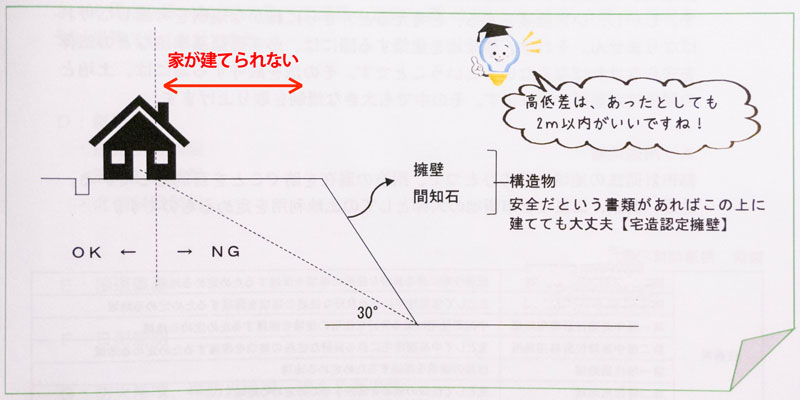 家が建てられない
高低差は、あったとしても
2m以内がいいですね！
擁壁
間知石
構造物
安全だという書類があればこの上に
建てても大丈夫【宅造認定擁壁】
OK ← → NG
30°